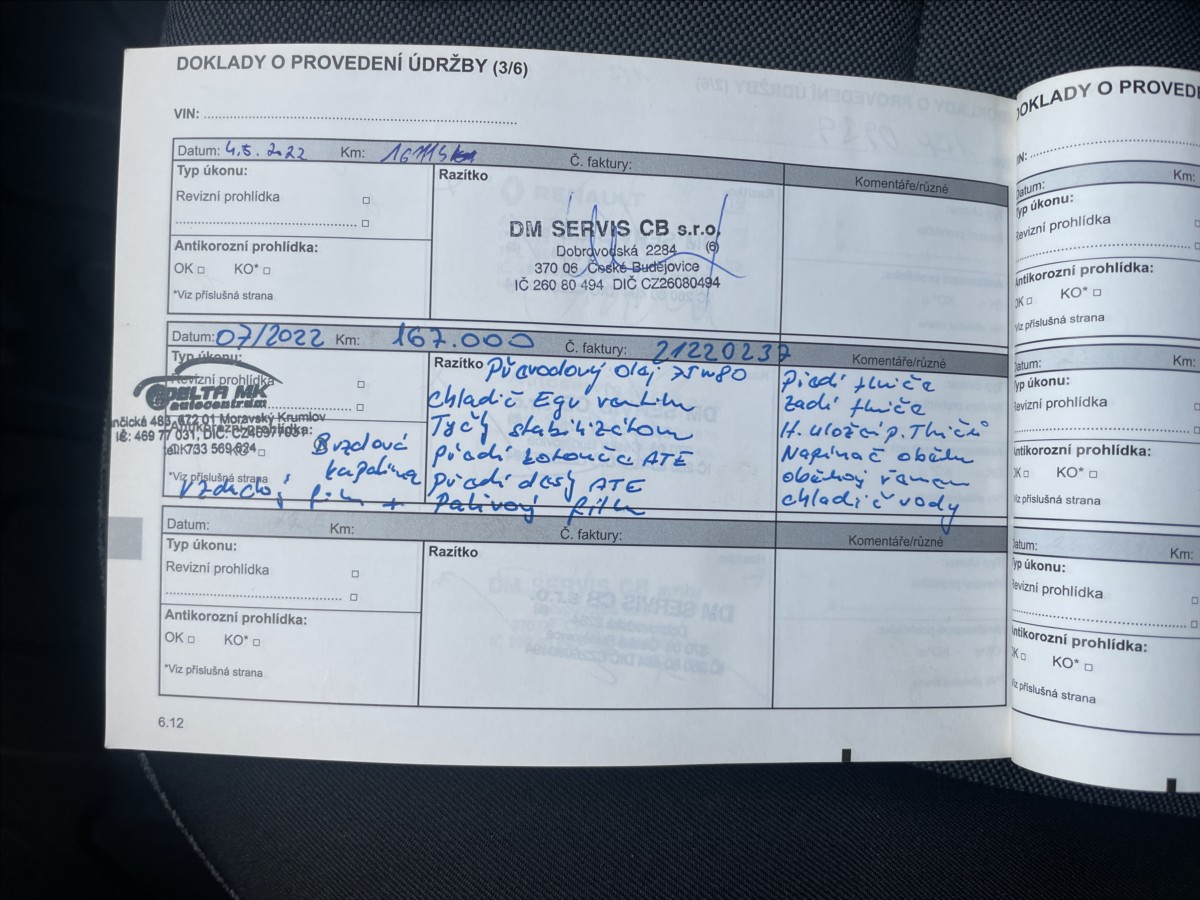 DOKLADY O PROVEDENÍ ÚDRŽBY (3/6)
VIN:
Datum: 4.5.2022 Km: Č. faktury:
Typ úkonu:
Razítko
Komentáře/různé
Revizní prohlídka
Antikorozní prohlídka:
OK KO*
*Viz příslušná strana
DM SERVIS CB s.r.o.
Dobrovodská 2284 (6)
370 06 České Budějovice
IČ 260 80 494 DIČ CZ26080494
Datum: 07/2022 Km: 167.000 Č. faktury: 21220237
Typ úkonu:
Razítko
Komentáře/různé
Revizní prohlídka
DELTA MK
autocentrum
485, 672 01 Moravský Krumlov
Antikorozní prohlídka:
IČ: 469 77 031, DIČ:
OK KO*
*Viz příslušná strana
Brzdová
kapalina
Převodový olej 75W80
chladič Egr
Tyčky
Přední ATE
Přední desky ATE
Palivový filtr
Přední tlmiče
Zadní tlmiče
chladič vody
Datum: Km: Č. faktury:
Typ úkonu:
Razítko
Komentáře/různé
Revizní prohlídka
Antikorozní prohlídka:
OK KO*
*Viz příslušná strana
6.12
DOKLADY O PROVEDE
Km:
Revizní prohlídka
Antikorozní prohlídka:
KO*
Viz příslušná strana
Datum: Km:
Typ úkonu:
Revizní prohlídka
Antikorozní prohlídka:
KO*
Viz příslušná strana
Datum: Km:
Typ úkonu:
Revizní prohlídka
Antikorozní prohlídka:
KO*
Viz příslušná strana